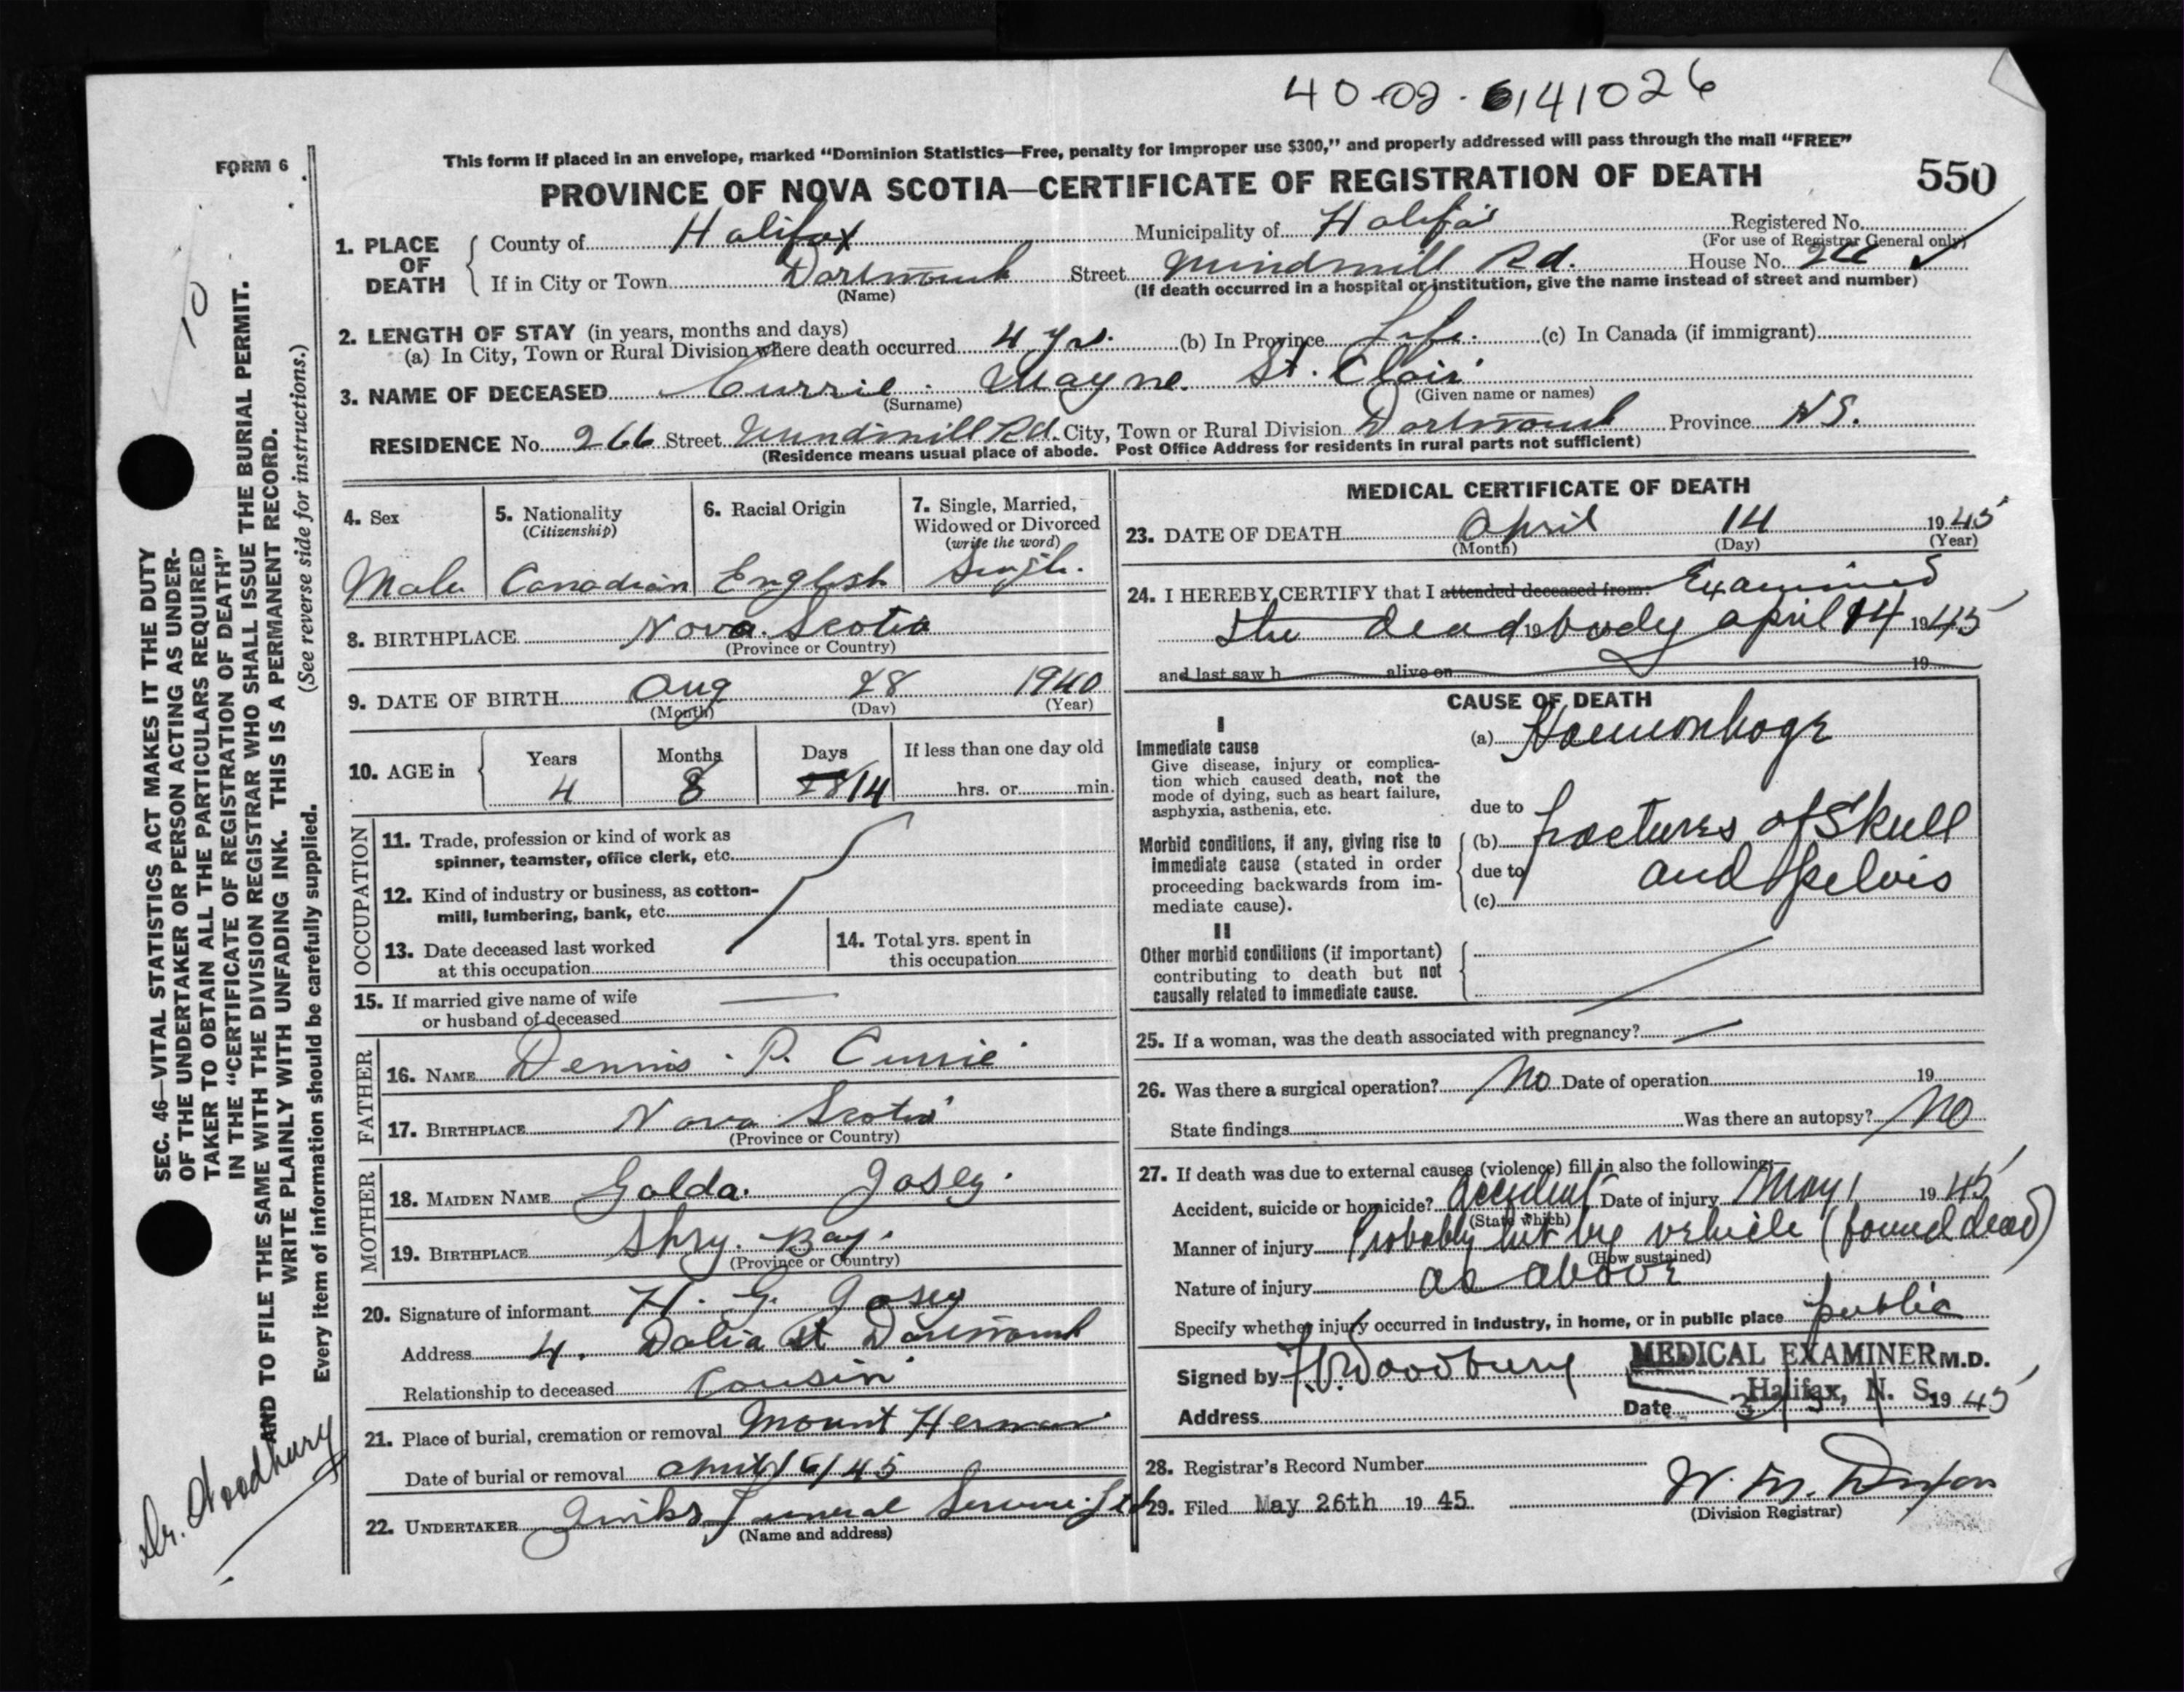 40-02-6141026
FORM 6
This form if placed in an envelope, marked “Dominion Statistics—Free, penalty for improper use $300,” and properly addressed will pass through the mail “FREE”
PROVINCE OF NOVA SCOTIA—CERTIFICATE OF REGISTRATION OF DEATH
550
1. PLACE OF DEATH
County of Halifax Municipality of Halifax Registered No.
(For use of Registrar General only)
If in City or Town Dartmouth Street Windmill Rd. House No. 266
(Name) (If death occurred in a hospital or institution, give the name instead of street and number)
2. LENGTH OF STAY (in years, months and days)
(a) In City, Town or Rural Division where death occurred 4 yrs. (b) In Province Life. (c) In Canada (if immigrant)
3. NAME OF DECEASED Currie. Wayne. St. Clair
(Surname) (Given name or names)
RESIDENCE No. 266 Street Windmill Rd. City, Town or Rural Division Dartmouth Province N.S.
(Residence means usual place of abode. Post Office Address for residents in rural parts not sufficient)
4. Sex
Male
5. Nationality
(Citizenship)
Canadian
6. Racial Origin
English
7. Single, Married,
Widowed or Divorced
(write the word)
Single.
8. BIRTHPLACE Nova Scotia
(Province or Country)
9. DATE OF BIRTH Aug 28 1940
(Month) (Day) (Year)
10. AGE in
Years Months Days If less than one day old
4 8 28 14 hrs. or min.
OCCUPATION
11. Trade, profession or kind of work as
spinner, teamster, office clerk, etc.
12. Kind of industry or business, as cotton-
mill, lumbering, bank, etc.
13. Date deceased last worked
at this occupation
14. Total yrs. spent in
this occupation
15. If married give name of wife
or husband of deceased
FATHER
16. NAME Dennis. P. Currie
17. BIRTHPLACE Nova Scotia
(Province or Country)
MOTHER
18. MAIDEN NAME Golda. Josey.
19. BIRTHPLACE Spry. Bay.
(Province or Country)
20. Signature of informant H. G. Josey
Address 4. Dalia St Dartmouth
Relationship to deceased Cousin
21. Place of burial, cremation or removal Mount Herman
Date of burial or removal April 16/45
22. UNDERTAKER Funeral Service. Ltd
(Name and address)
MEDICAL CERTIFICATE OF DEATH
23. DATE OF DEATH April 14 1945
(Month) (Day) (Year)
24. I HEREBY CERTIFY that I attended deceased from: Examined
the dead 19 body april 14 1945
and last saw h alive on 19
CAUSE OF DEATH
I
Immediate cause
Give disease, injury or complica-
tion which caused death, not the
mode of dying, such as heart failure,
asphyxia, asthenia, etc.
(a) Haemorrhage
due to
Morbid conditions, if any, giving rise to
immediate cause (stated in order
proceeding backwards from im-
mediate cause).
(b) fractures of Skull
due to and pelvis
(c)
II
Other morbid conditions (if important)
contributing to death but not
causally related to immediate cause.
25. If a woman, was the death associated with pregnancy?
26. Was there a surgical operation? No Date of operation 19
State findings Was there an autopsy? No
27. If death was due to external causes (violence) fill in also the following:—
Accident, suicide or homicide? accident Date of injury May 1 1945
(State which)
Manner of injury Probably hit by vehicle (found dead)
(How sustained)
Nature of injury as above
Specify whether injury occurred in industry, in home, or in public place public
Signed by Woodbury MEDICAL EXAMINER M.D.
Halifax, N. S.
Address Date 1945
28. Registrar's Record Number
29. Filed May 26th 1945. W. M.
(Division Registrar)
SEC. 46—VITAL STATISTICS ACT MAKES IT THE DUTY
OF THE UNDERTAKER OR PERSON ACTING AS UNDER-
TAKER TO OBTAIN ALL THE PARTICULARS REQUIRED
IN THE “CERTIFICATE OF REGISTRATION OF DEATH”
AND TO FILE THE SAME WITH THE DIVISION REGISTRAR WHO SHALL ISSUE THE BURIAL PERMIT.
WRITE PLAINLY WITH UNFADING INK. THIS IS A PERMANENT RECORD.
Every item of information should be carefully supplied. (See reverse side for instructions.)
10
Dr. Woodbury